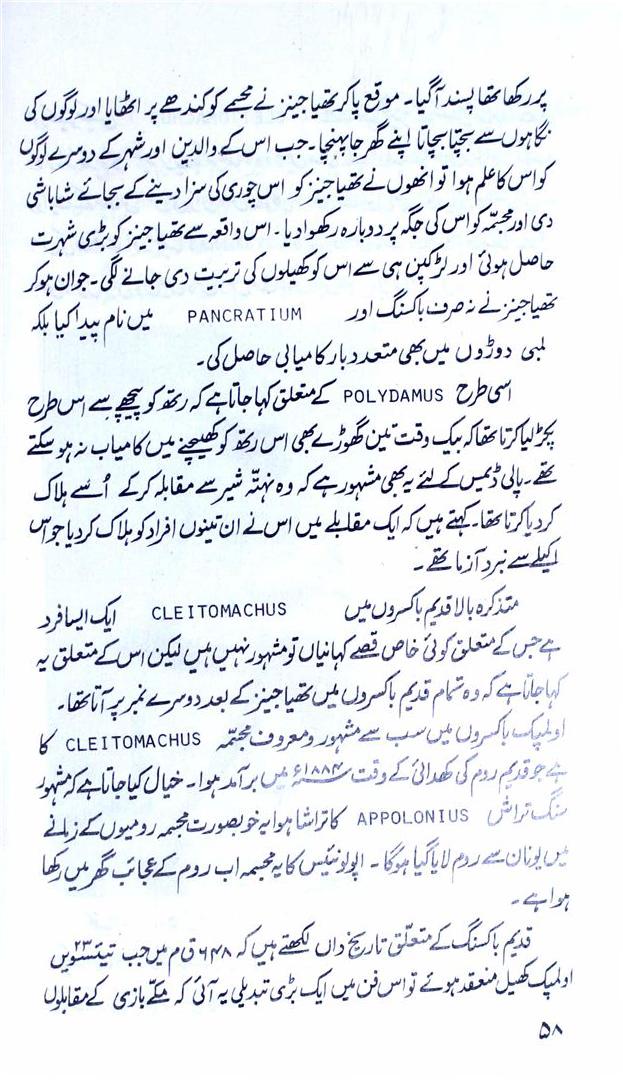 پر رکھا تھا پسند آگیا۔ موقع پاکر تھیا جینز نے مجسمے کو کندھے پر اٹھایا اور لوگوں کی
نگاہوں سے بچتا بچاتا اپنے گھر جا پہنچا۔ جب اس کے والدین اور شہر کے دوسرے لوگوں
کو اس کا علم ہوا تو انھوں نے تھیا جینز کو اس چوری کی سزا دینے کے بجائے شاباشی
دی اور مجسمّہ کو اس کی جگہ پر دوبارہ رکھوا دیا۔ اس واقعہ سے تھیا جینز کو بڑی شہرت
حاصل ہوئی اور لڑکپن ہی سے اس کو کھیلوں کی تربیت دی جانے لگی۔ جوان ہو کر
تھیا جینز نے نہ صرف باکسنگ اور PANCRATIUM میں نام پیدا کیا بلکہ
لمبی دوڑوں میں بھی متعدد بار کامیابی حاصل کی۔
اسی طرح POLYDAMUS کے متعلق کہا جاتا ہے کہ رتھ کو پیچھے سے اس طرح
پکڑ لیا کرتا تھا کہ بیک وقت تین گھوڑے بھی اس رتھ کو کھینچنے میں کامیاب نہ ہو سکتے
تھے۔ پالی ڈیمس کے لئے یہ بھی مشہور ہے کہ وہ نہتّہ شیر سے مقابلہ کرکے اُسے ہلاک
کر دیا کرتا تھا۔ کہتے ہیں کہ ایک مقابلے میں اس نے ان تینوں افراد کو ہلاک کر دیا جو اس
اکیلے سے نبرد آزما تھے۔
متذکرہ بالا قدیم باکسروں میں CLEITOMACHUS ایک ایسا فرد
ہے جس کے متعلق کوئی خاص قصے کہانیاں تو مشہور نہیں ہیں لیکن اس کے متعلق یہ
کہا جاتا ہے کہ وہ تمام قدیم باکسروں میں تھیا جینز کے بعد دوسرے نمبر پر آتا تھا۔
اولمپک باکسروں میں سب سے مشہور و معروف مجسمّہ CLEITOMACHUS کا
ہے جو قدیم روم کی کھدائی کے وقت ۱۸۸۴ء میں برآمد ہوا۔ خیال کیا جاتا ہے کہ مشہور
سنگ تراش APPOLONIUS کا تراشا ہوا یہ خوبصورت مجسمہ رومیوں کے زمانے
میں یونان سے روم لایا گیا ہوگا۔ اپولونیئس کا یہ مجسمہ اب روم کے عجائب گھر میں رکھا
ہوا ہے۔
قدیم باکسنگ کے متعلّق تاریخ داں لکھتے ہیں کہ ۶۴۸ ق م میں جب تیئسویں ۲۳
اولمپک کھیل منعقد ہوئے تو اس فن میں ایک بڑی تبدیلی یہ آئی کہ مکے بازی کے مقابلوں
۵۸